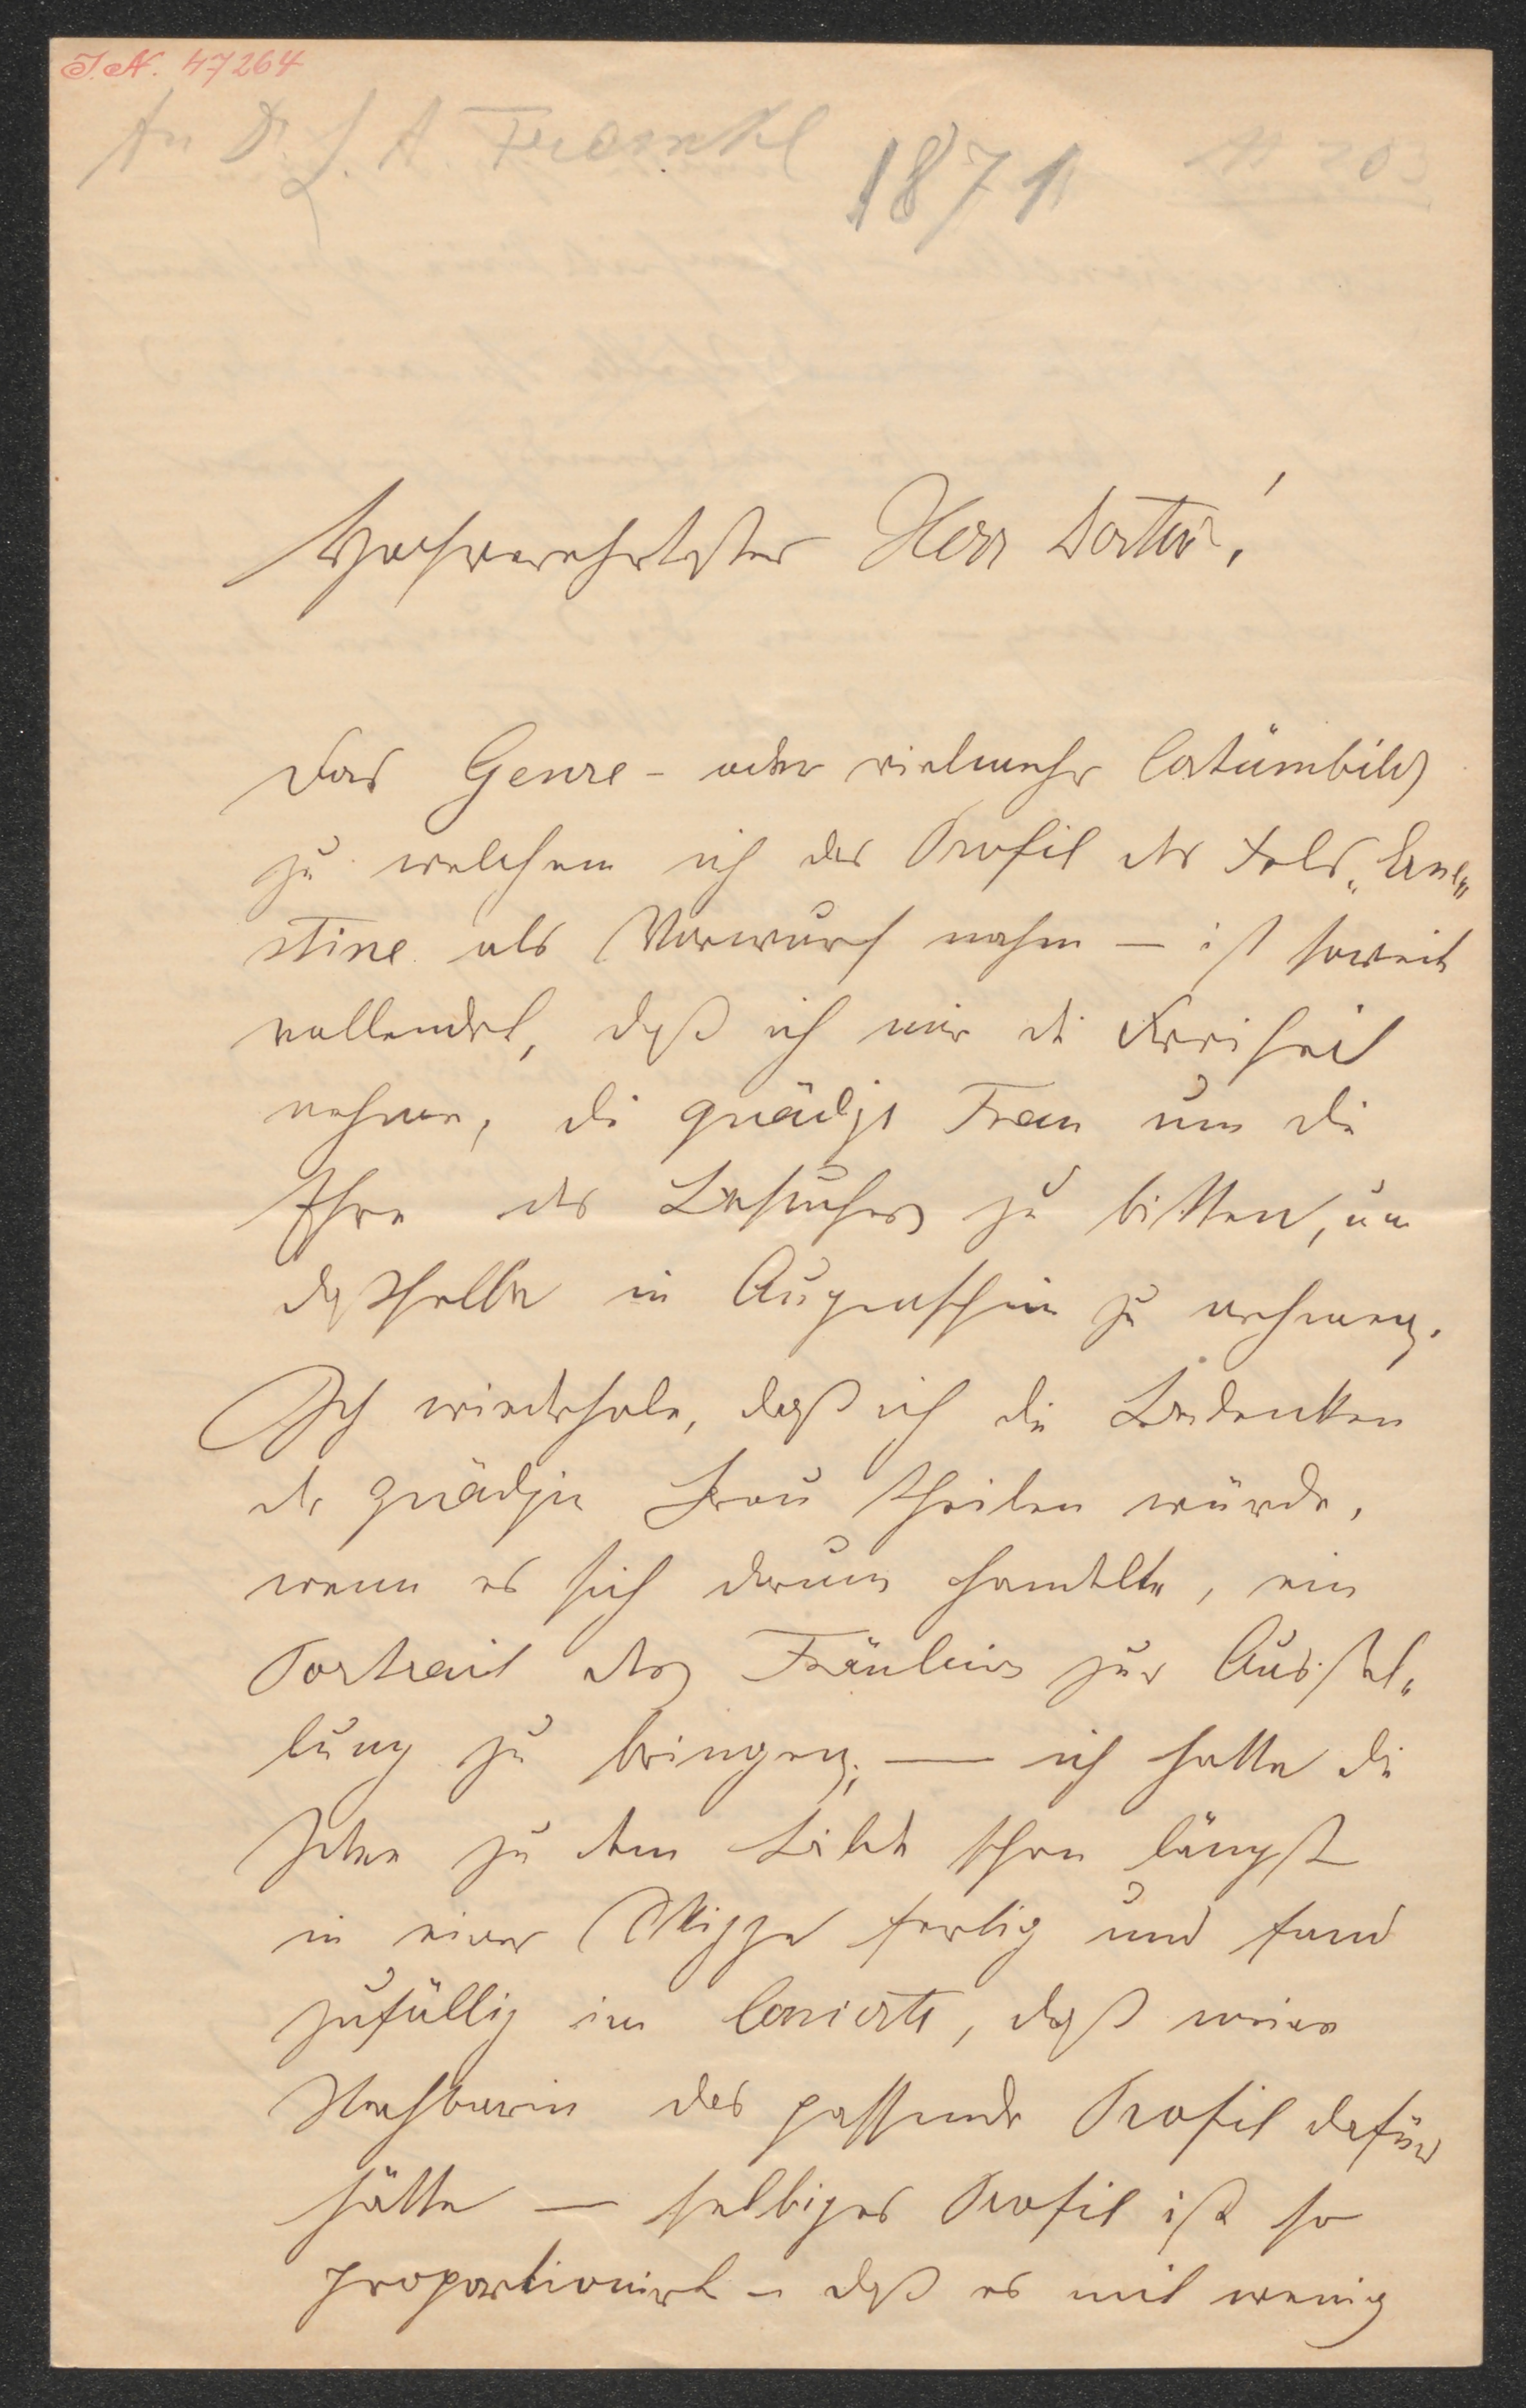 I. N. 47264
An Dr. L. A. Frankl 1871 N 203
Hochverehrtester Herr Doctor!
Das Genre- oder vielmehr Costümbild
zu welchem ich das Profil des Frls. Erne„
stine als Vorwurf nahm — ist soweit
vollendet, daß ich mir die Freiheit
nehme, die gnädige Frau um die
Ehre des Besuches zu bitten, um
dasselbe in Augenschein zu nehmen.
Ich wiederhole, daß ich die Bedenken
der gnädigen Frau theilen würde,
wenn es sich darum handelte, ein
Portrait des Fräuleins zur Ausstel„
lung zu bringen; — ich hatte die
Idee zu dem Bilde schon längst
in einer Skizze fertig und fand
zufällig im Concerte, daß meine
Nachbarin das passende Profil dafür
hätte — selbiges Profil ist so
proportionirt – daß es mit wenig